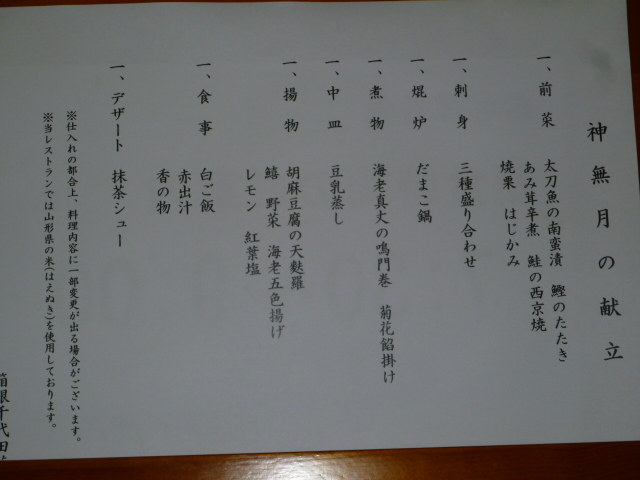 神無月の献立
一、前菜　太刀魚の南蛮漬　鰹のたたき
あみ茸辛煮　鮭の西京焼
焼栗　はじかみ
一、刺身　三種盛り合わせ
一、焜炉　だまこ鍋
一、煮物　海老真丈の鳴門巻　菊花餡掛け
一、中皿　豆乳蒸し
一、揚物　胡麻豆腐の天麩羅
鱚　野菜　海老五色揚げ
レモン　紅葉塩
一、食事　白ご飯
赤出汁
香の物
一、デザート　抹茶シュー
※仕入れの都合上、料理内容に一部変更が出る場合がございます。
※当レストランでは山形県の米(はえぬき)を使用しております。
箱根千代田